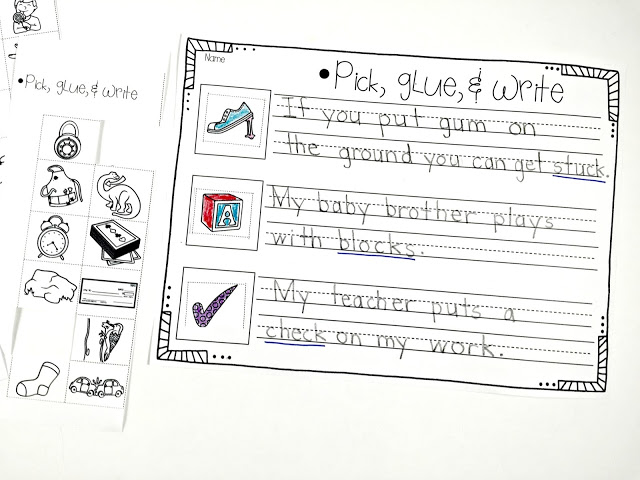 Pick, glue, & write
Name
Pick, glue, & write
If you put gum on
the ground you can get stuck.
A
My baby brother plays
with blocks.
My teacher puts a
check on my work.